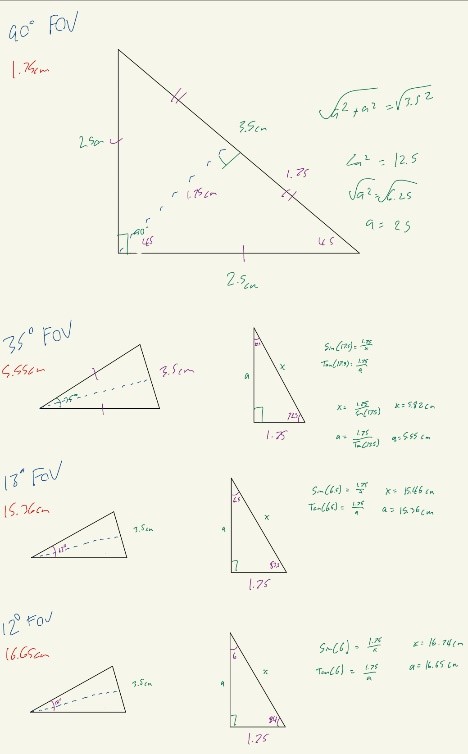 90° FOV
1.75cm
2.5cm
3.5cm
1.25
1.75cm
90°
45
45
2.5cm
√a²+a² = √3.5²
2a² = 12.5
√a² = √6.25
a = 2.5
35° FOV
5.55cm
35°
3.5cm
a
x
72.5
1.25
Sin(17.5) = 1.75/x
Tan(17.5) = 1.75/a
x = 1.75/Sin(17.5) x = 5.82cm
a = 1.75/Tan(17.5) a = 5.55cm
13° FOV
15.36cm
13°
3.5cm
6.5
a
x
83.5
1.25
Sin(6.5) = 1.75/x x = 15.46cm
Tan(6.5) = 1.75/a a = 15.36cm
12° FOV
16.65cm
12°
3.5cm
6
a
x
84
1.25
Sin(6) = 1.75/x x = 16.74cm
Tan(6) = 1.75/a a = 16.65cm